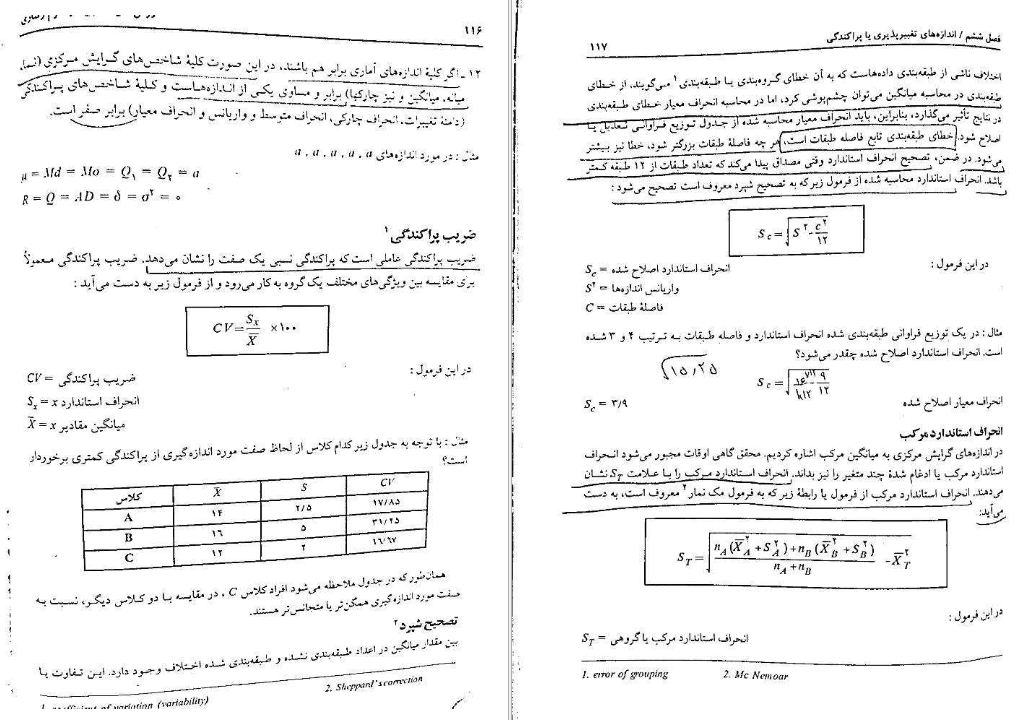 ۱۱۶
۱۲ ـ اگر کلیهٔ اندازه‌های آماری برابر هم باشند، در این صورت کلیهٔ شاخص‌های گرایش مرکزی (نما،
میانه، میانگین و نیز چارکها) برابر و مساوی یکی از اندازه‌هاست و کلیهٔ شاخص‌های پراکندگی
(دامنهٔ تغییرات، انحراف چارکی، انحراف متوسط و واریانس و انحراف معیار) برابر صفر است.
مثال : در مورد اندازه‌های a , a , a , a , a
μ = Md = Mo = Q۱ = Q۲ = a
R = Q = AD = δ = σ² = ۰
ضریب پراکندگی ۱
ضریب پراکندگی عاملی است که پراکندگی نسبی یک صفت را نشان می‌دهد. ضریب پراکندگی معمولاً
برای مقایسه بین ویژگی‌های مختلف یک گروه به کار می‌رود و از فرمول زیر به دست می‌آید :
CV = Sx / X̄ ×۱۰۰
در این فرمول :
ضریب پراکندگی = CV
انحراف استاندارد Sx = x
میانگین مقادیر X̄ = x
مثال : با توجه به جدول زیر کدام کلاس از لحاظ صفت مورد اندازه‌گیری از پراکندگی کمتری برخوردار
است؟
کلاس X̄ S CV
A ۱۴ ۲/۵ ۱۷/۸۵
B ۱۶ ۵ ۳۱/۲۵
C ۱۲ ۲ ۱۶/۶۷
همان‌طور که در جدول ملاحظه می‌شود افراد کلاس C ، در مقایسه با دو کلاس دیگر، نسبت به
صفت مورد اندازه‌گیری همگن‌تر یا متجانس‌تر هستند.
تصحیح شپرد ۲
بین مقدار میانگین در اعداد طبقه‌بندی نشده و طبقه‌بندی شده اختلاف وجود دارد. این تفاوت یا
1. coefficient of variation (variability)
2. Sheppard's correction
فصل ششم / اندازه‌های تغییرپذیری یا پراکندگی
۱۱۷
اختلاف ناشی از طبقه‌بندی داده‌هاست که به آن خطای گروه‌بندی یا طبقه‌بندی ۱ می‌گویند. از خطای
طبقه‌بندی در محاسبه میانگین می‌توان چشم‌پوشی کرد، اما در محاسبه انحراف معیار خطای طبقه‌بندی
در نتایج تأثیر می‌گذارد، بنابراین، باید انحراف معیار محاسبه شده از جدول توزیع فراوانی تعدیل یا
اصلاح شود. خطای طبقه‌بندی تابع فاصله طبقات است، هر چه فاصلهٔ طبقات بزرگتر شود، خطا نیز بیشتر
می‌شود. در ضمن، تصحیح انحراف استاندارد وقتی مصداق پیدا می‌کند که تعداد طبقات از ۱۲ طبقه کمتر
باشد. انحراف استاندارد محاسبه شده از فرمول زیر که به تصحیح شپرد معروف است تصحیح می‌شود :
Sc = √(S² - c²/۱۲)
در این فرمول :
انحراف استاندارد اصلاح شده = Sc
واریانس اندازه‌ها = S²
فاصلهٔ طبقات = C
مثال : در یک توزیع فراوانی طبقه‌بندی شده انحراف استاندارد و فاصله طبقات به ترتیب ۴ و ۳ شده
است. انحراف استاندارد اصلاح شده چقدر می‌شود؟
√۱۵٫۲۵
انحراف معیار اصلاح شده Sc = ۳/۹
انحراف استاندارد مرکب
در اندازه‌های گرایش مرکزی به میانگین مرکب اشاره کردیم. محقق گاهی اوقات مجبور می‌شود انحراف
استاندارد مرکب یا ادغام شدهٔ چند متغیر را نیز بداند. انحراف استاندارد مرکب را با علامت ST نشان
می‌دهند. انحراف استاندارد مرکب از فرمول یا رابطهٔ زیر که به فرمول مک نمار ۲ معروف است، به دست
می‌آید:
ST = √((nA (X̄A² + SA²) + nB (X̄B² + SB²)) / (nA + nB) - X̄T²)
در این فرمول :
انحراف استاندارد مرکب یا گروهی = ST
1. error of grouping 2. Mc Nemoar